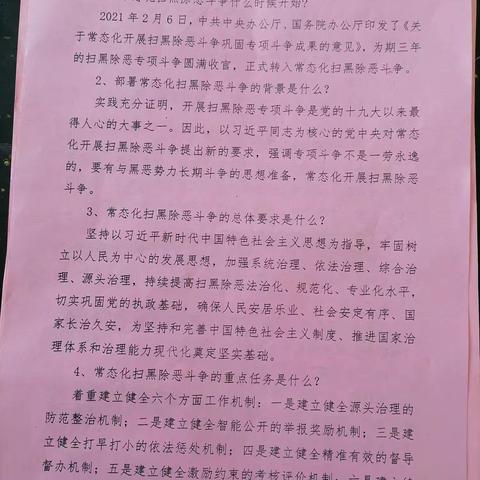 扫黑除恶斗争什么时候开始?
2021年2月6日,中共中央办公厅、国务院办公厅印发了《关
于常态化开展扫黑除恶斗争巩固专项斗争成果的意见》,为期三年
的扫黑除恶专项斗争圆满收官,正式转入常态化扫黑除恶斗争。
2、部署常态化扫黑除恶斗争的背景是什么?
实践充分证明,开展扫黑除恶专项斗争是党的十九大以来最
得人心的大事之一。因此,以习近平同志为核心的党中央对常态
化开展扫黑除恶斗争提出新的要求,强调专项斗争不是一劳永逸
的,要有与黑恶势力长期斗争的思想准备,常态化开展扫黑除恶
斗争。
3、常态化扫黑除恶斗争的总体要求是什么?
坚持以习近平新时代中国特色社会主义思想为指导,牢固树
立以人民为中心的发展思想,加强系统治理、依法治理、综合治
理、源头治理,持续提高扫黑除恶法治化、规范化、专业化水平,
切实巩固党的执政基础,确保人民安居乐业、社会安定有序、国
家长治久安,为坚持和完善中国特色社会主义制度、推进国家治
理体系和治理能力现代化奠定坚实基础。
4、常态化扫黑除恶斗争的重点任务是什么?
着重建立健全六个方面工作机制:一是建立健全源头治理的
防范整治机制;二是建立健全智能公开的举报奖励机制;三是建
立健全打早打小的依法惩处机制;四是建立健全精准有效的督导
督办机制;五是建立健全激励约束的考核评价机制;六是建立